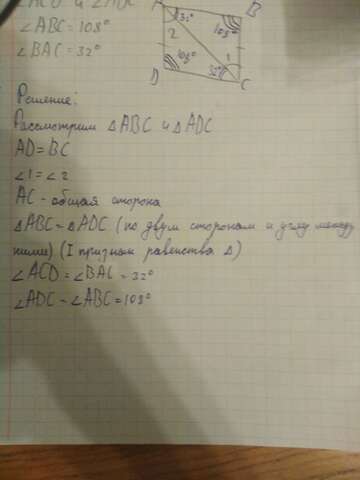 ∠ACD и ∠ADC
∠ABC = 108°
∠BAC = 32°
B
32°
2
108°
108°
1
32°
D
C
Решение:
Рассмотрим △ABC и △ADC
AD = BC
∠1 = ∠2
AC - общая сторона
△ABC = △ADC (по двум сторонам и углу между
ними) (I признак равенства △)
∠ACD = ∠BAC = 32°
∠ADC = ∠ABC = 108°